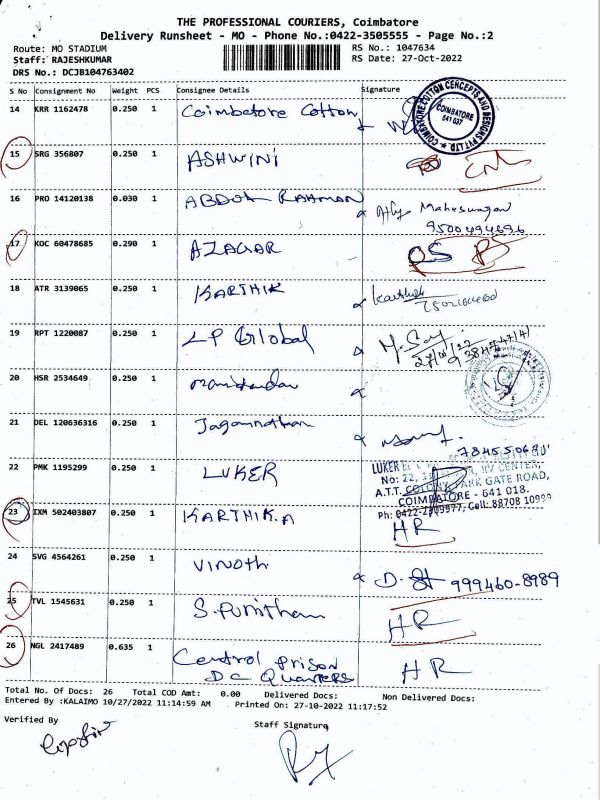 THE PROFESSIONAL COURIERS, Coimbatore
Delivery Runsheet - MO - Phone No.:0422-3505555 - Page No.:2
Route: MO STADIUM
Staff: RAJESHKUMAR
DRS No.: DCJB104763402
RS No.: 1047634
RS Date: 27-Oct-2022
S No Consignment No Weight PCS Consignee Details Signature
14 KRR 1162478 0.250 1 Coimbatore Cotton
COIMBATORE COTTON CONCEPTS AND DESIGNS PVT LTD
COIMBATORE 641 037
15 SRG 356807 0.250 1 ASHWINI
16 PRO 14120138 0.030 1 ABDUL RAHMAN
Maheswaran
9500494696
17 KOC 60478685 0.290 1 AZAGAR
18 ATR 3139065 0.250 1 KARTHIK Karthik
19 RPT 1220087 0.250 1 LP Global
20 HSR 2534649 0.250 1 Manikandan
21 DEL 120636316 0.250 1 Jagannathan
22 PMK 1195299 0.250 1 LUKER
LUKER
No: 22, CENTER,
A.T.T. COLONY, PARK GATE ROAD,
COIMBATORE - 641 018.
Ph: Cell: 88708
23 IXM 502403807 0.250 1 KARTHIK.A HR
24 SVG 4564261 0.250 1 VINOTH 999460-8989
25 TVL 1545631 0.250 1 HR
26 NGL 2417489 0.635 1 Central Prison HR
DC Quarters
Total No. Of Docs: 26 Total COD Amt: 0.00 Delivered Docs: Non Delivered Docs:
Entered By :KALAIMO 10/27/2022 11:14:59 AM Printed On: 27-10-2022 11:17:52
Verified By Staff Signature